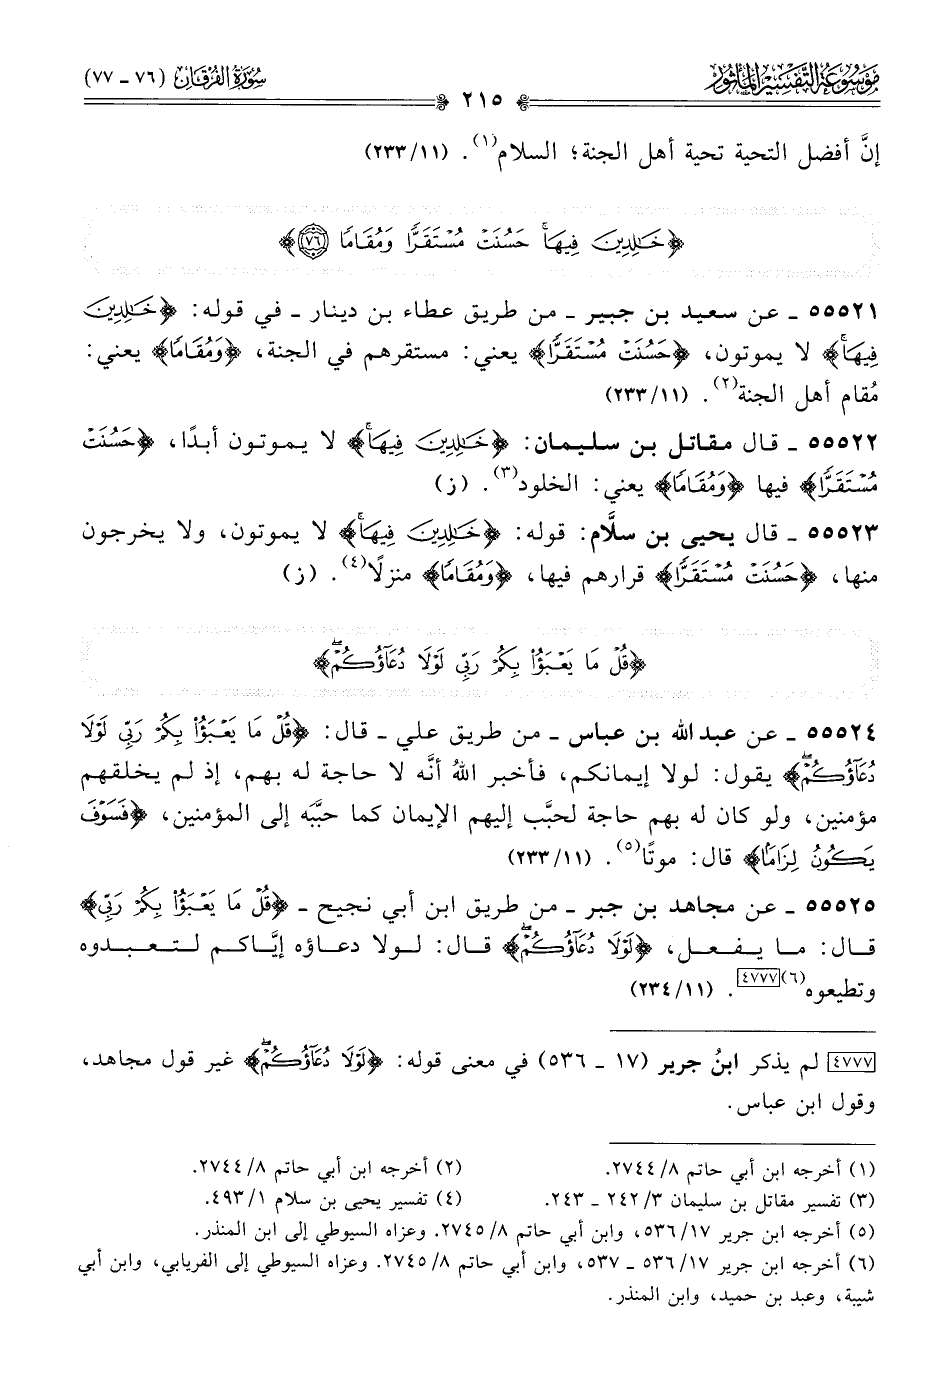 مَوْسُوعَة التَّفْسِير المَأْثُور
سُورَةُ الفُرْقَان (٧٦ - ٧٧)
٢١٥
إنَّ أفضل التحية تحية أهل الجنة؛ السلام(١). (٢٣٣/١١)
﴿خَـٰلِدِينَ فِيهَاۚ حَسُنَتۡ مُسۡتَقَرّٗا وَمُقَامٗا ٧٦﴾
٥٥٥٢١ - عن سعيد بن جبير - من طريق عطاء بن دينار - في قوله: ﴿خَـٰلِدِينَ
فِيهَاۚ﴾ لا يموتون، ﴿حَسُنَتۡ مُسۡتَقَرّٗا﴾ يعني: مستقرهم في الجنة، ﴿وَمُقَامٗا﴾ يعني:
مُقام أهل الجنة(٢). (٢٣٣/١١)
٥٥٥٢٢ - قال مقاتل بن سليمان: ﴿خَـٰلِدِينَ فِيهَاۚ﴾ لا يموتون أبدًا، ﴿حَسُنَتۡ
مُسۡتَقَرّٗا﴾ فيها ﴿وَمُقَامٗا﴾ يعني: الخلود(٣). (ز)
٥٥٥٢٣ - قال يحيى بن سلَّام: قوله: ﴿خَـٰلِدِينَ فِيهَاۚ﴾ لا يموتون، ولا يخرجون
منها، ﴿حَسُنَتۡ مُسۡتَقَرّٗا﴾ قرارهم فيها، ﴿وَمُقَامٗا﴾ منزلًا(٤). (ز)
﴿قُلۡ مَا يَعۡبَؤُاْ بِكُمۡ رَبِّي لَوۡلَا دُعَآؤُكُمۡۖ﴾
٥٥٥٢٤ - عن عبد الله بن عباس - من طريق علي - قال: ﴿قُلۡ مَا يَعۡبَؤُاْ بِكُمۡ رَبِّي لَوۡلَا
دُعَآؤُكُمۡۖ﴾ يقول: لولا إيمانكم، فأخبر اللهُ أنَّه لا حاجة له بهم، إذ لم يخلقهم
مؤمنين، ولو كان له بهم حاجة لحبَّب إليهم الإيمان كما حبَّبه إلى المؤمنين، ﴿فَسَوۡفَ
يَكُونُ لِزَامَۢا﴾ قال: موتًا(٥). (٢٣٣/١١)
٥٥٥٢٥ - عن مجاهد بن جبر - من طريق ابن أبي نجيح - ﴿قُلۡ مَا يَعۡبَؤُاْ بِكُمۡ رَبِّي﴾
قال: ما يفعل، ﴿لَوۡلَا دُعَآؤُكُمۡۖ﴾ قال: لولا دعاؤه إيَّاكم لتعبدوه
وتطيعوه(٦)[٤٧٧٧]. (٢٣٤/١١)
[٤٧٧٧] لم يذكر ابنُ جرير (١٧ - ٥٣٦) في معنى قوله: ﴿لَوۡلَا دُعَآؤُكُمۡۖ﴾ غير قول مجاهد،
وقول ابن عباس.
(١) أخرجه ابن أبي حاتم ٨/ ٢٧٤٤.
(٢) أخرجه ابن أبي حاتم ٨/ ٢٧٤٤.
(٣) تفسير مقاتل بن سليمان ٣/ ٢٤٢ - ٢٤٣.
(٤) تفسير يحيى بن سلام ١/ ٤٩٣.
(٥) أخرجه ابن جرير ١٧/ ٥٣٦، وابن أبي حاتم ٨/ ٢٧٤٥. وعزاه السيوطي إلى ابن المنذر.
(٦) أخرجه ابن جرير ١٧/ ٥٣٦ - ٥٣٧، وابن أبي حاتم ٨/ ٢٧٤٥. وعزاه السيوطي إلى الفريابي، وابن أبي
شيبة، وعبد بن حميد، وابن المنذر.